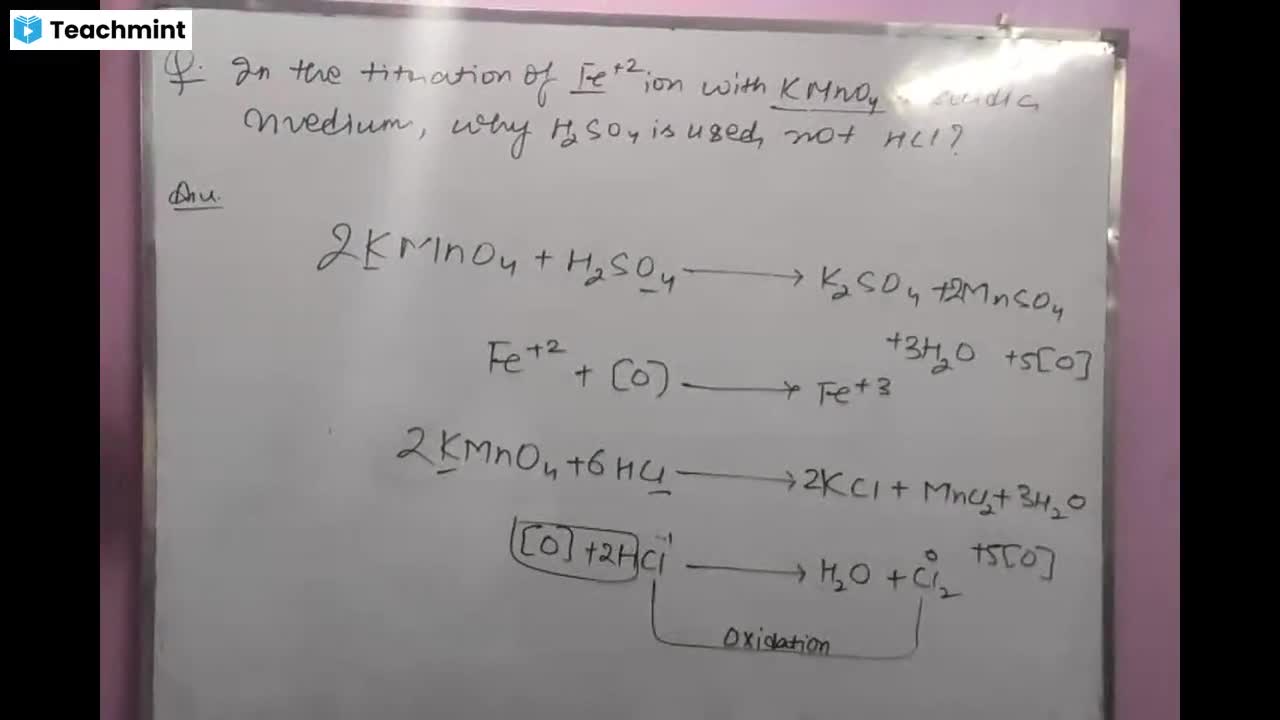 Teachmint
Q. In the titration of Fe+2 ion with KMnO4
medium, why H2SO4 is used, not HCl?
Ans.
2KMnO4 + H2SO4 → K2SO4 +2MnSO4
+3H2O +5[O]
Fe+2 + [O] → Fe+3
2KMnO4 +6HCl → 2KCl + MnCl2+ 3H2O
+5[O]
[O] +2HCl-1 → H2O + Cl2 0
Oxidation